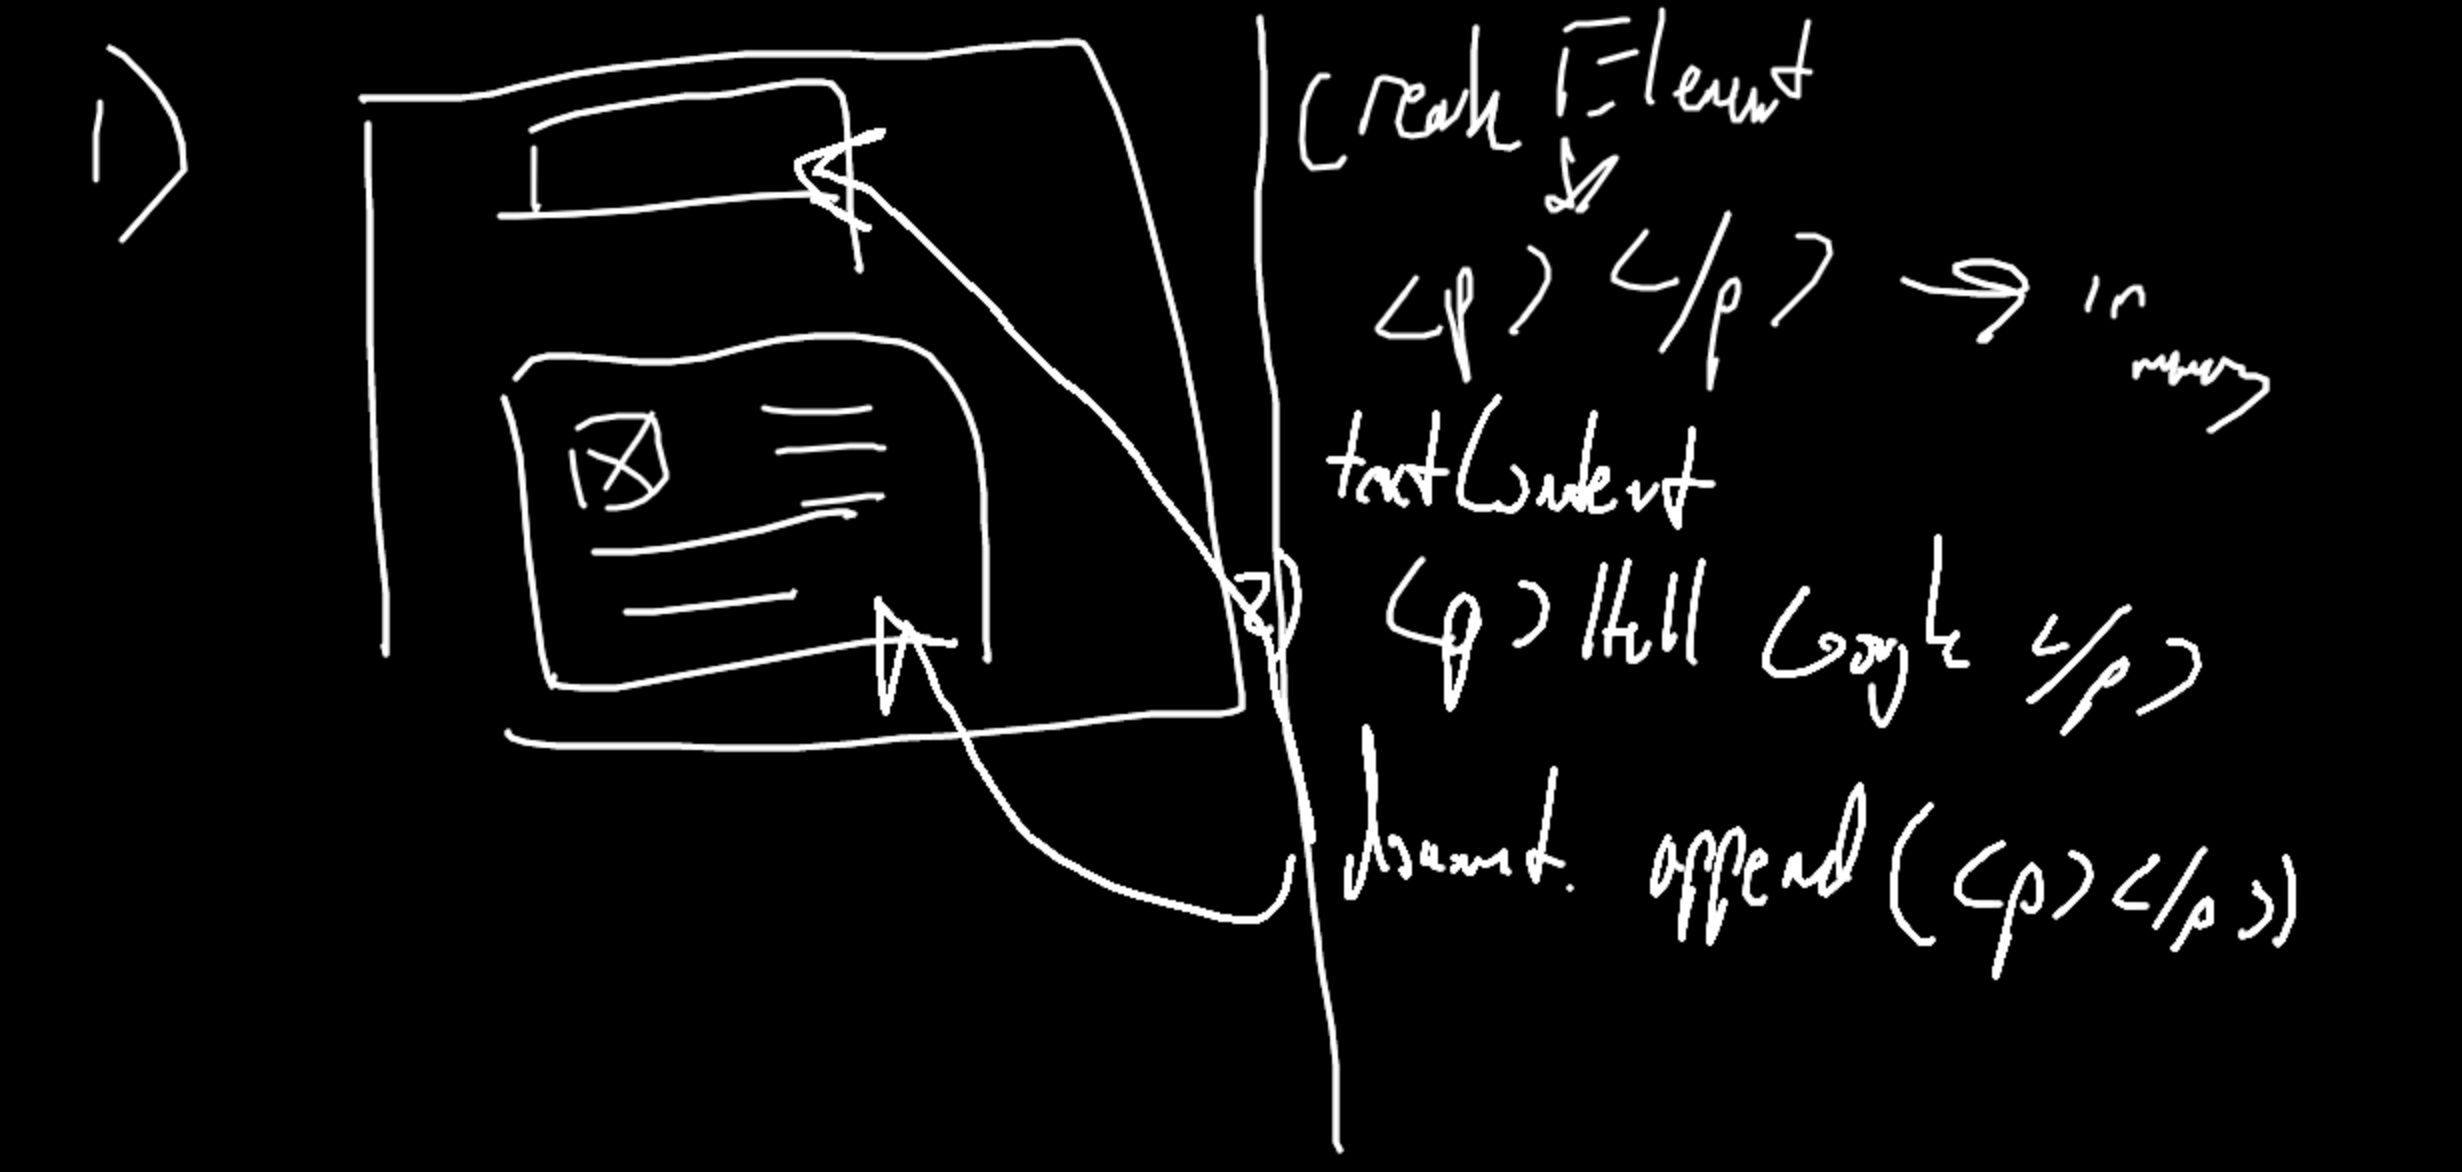 1)
Create Element
<p> </p> → in
memory
textContent
<p> Hell Google </p>
document. append(<p></p>)